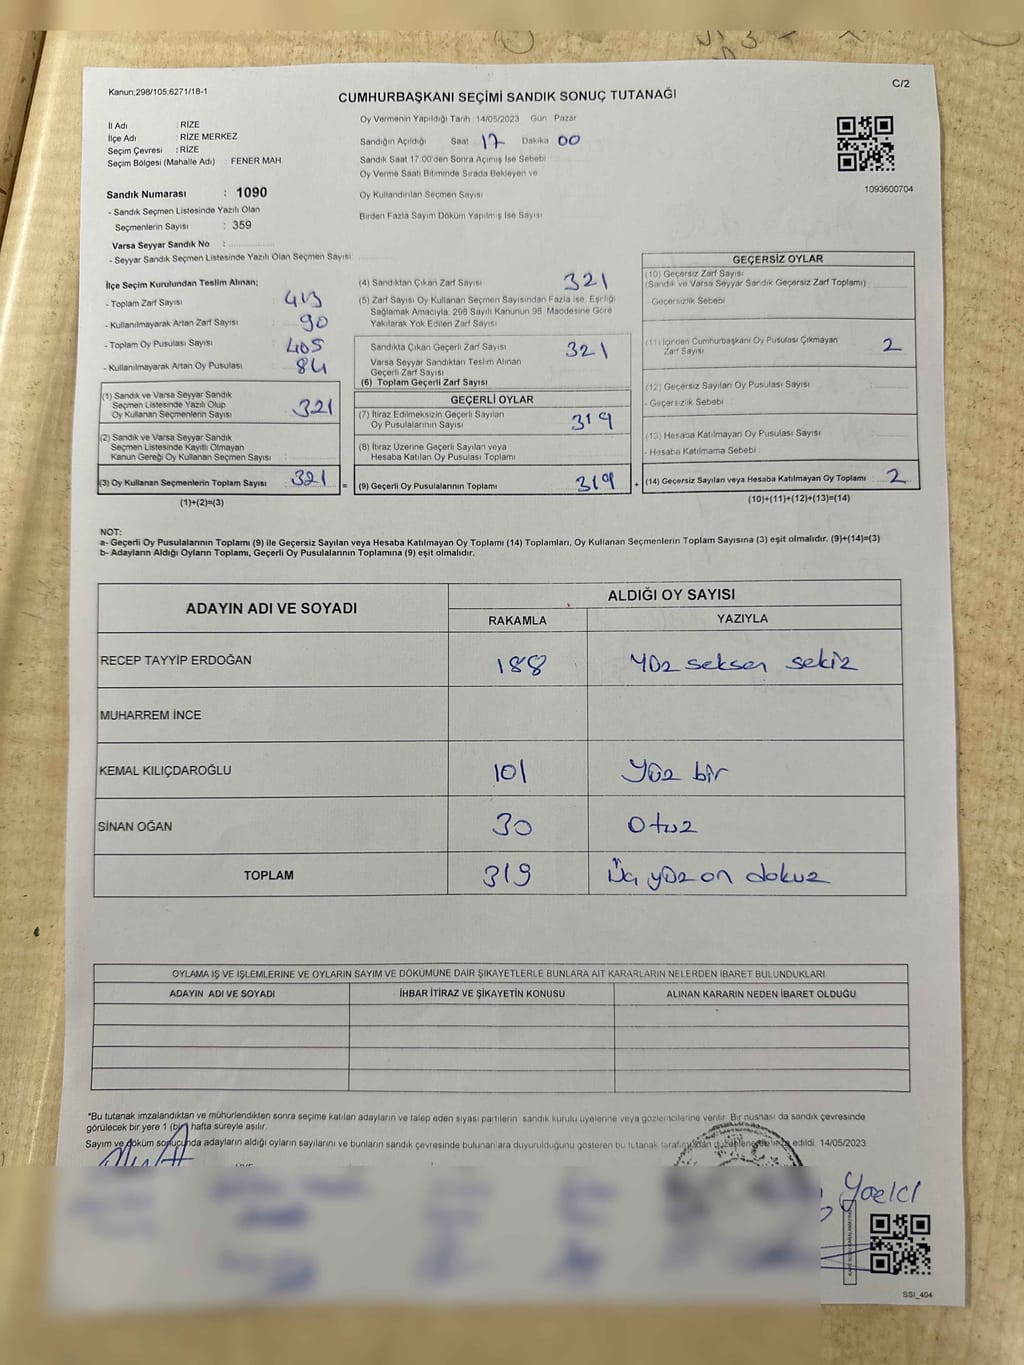 Kanun:298/105;6271/18-1
C/2
CUMHURBAŞKANI SEÇİMİ SANDIK SONUÇ TUTANAĞI
İl Adı : RİZE
İlçe Adı : RİZE MERKEZ
Seçim Çevresi : RİZE
Seçim Bölgesi (Mahalle Adı) : FENER MAH.
Sandık Numarası : 1090
- Sandık Seçmen Listesinde Yazılı Olan
Seçmenlerin Sayısı : 359
Varsa Seyyar Sandık No :
- Seyyar Sandık Seçmen Listesinde Yazılı Olan Seçmen Sayısı:
Oy Vermenin Yapıldığı Tarih :14/05/2023 Gün Pazar
Sandığın Açıldığı Saat 17 Dakika 00
Sandık Saat 17.00'den Sonra Açılmış İse Sebebi
Oy Verme Saati Bitiminde Sırada Bekleyen ve
Oy Kullandırılan Seçmen Sayısı
Birden Fazla Sayım Döküm Yapılmış İse Sayısı
1093600704
İlçe Seçim Kurulundan Teslim Alınan;
- Toplam Zarf Sayısı : 413
- Kullanılmayarak Artan Zarf Sayısı : 90
- Toplam Oy Pusulası Sayısı : 405
- Kullanılmayarak Artan Oy Pusulası : 84
(1) Sandık ve Varsa Seyyar Sandık
Seçmen Listesinde Yazılı Olup
Oy Kullanan Seçmenlerin Sayısı : 321
(2) Sandık ve Varsa Seyyar Sandık
Seçmen Listesinde Kayıtlı Olmayan
Kanun Gereği Oy Kullanan Seçmen Sayısı :
(3) Oy Kullanan Seçmenlerin Toplam Sayısı : 321
(1)+(2)=(3)
(4) Sandıktan Çıkan Zarf Sayısı 321
(5) Zarf Sayısı Oy Kullanan Seçmen Sayısından Fazla İse, Eşitliği
Sağlamak Amacıyla, 298 Sayılı Kanunun 98. Maddesine Göre
Yakılarak Yok Edilen Zarf Sayısı
Sandıkta Çıkan Geçerli Zarf Sayısı 321
Varsa Seyyar Sandıktan Teslim Alınan
Geçerli Zarf Sayısı
(6) Toplam Geçerli Zarf Sayısı
GEÇERLİ OYLAR
(7) İtiraz Edilmeksizin Geçerli Sayılan
Oy Pusulalarının Sayısı 319
(8) İtiraz Üzerine Geçerli Sayılan veya
Hesaba Katılan Oy Pusulası Toplamı
= (9) Geçerli Oy Pusulalarının Toplamı 319
GEÇERSİZ OYLAR
(10) Geçersiz Zarf Sayısı
(Sandık ve Varsa Seyyar Sandık Geçersiz Zarf Toplamı)
Geçersizlik Sebebi
(11) İçinden Cumhurbaşkanı Oy Pusulası Çıkmayan
Zarf Sayısı 2
(12) Geçersiz Sayılan Oy Pusulası Sayısı
- Geçersizlik Sebebi
(13) Hesaba Katılmayan Oy Pusulası Sayısı
- Hesaba Katılmama Sebebi
+ (14) Geçersiz Sayılan veya Hesaba Katılmayan Oy Toplamı 2
(10)+(11)+(12)+(13)=(14)
NOT:
a- Geçerli Oy Pusulalarının Toplamı (9) ile Geçersiz Sayılan veya Hesaba Katılmayan Oy Toplamı (14) Toplamları, Oy Kullanan Seçmenlerin Toplam Sayısına (3) eşit olmalıdır. (9)+(14)=(3)
b- Adayların Aldığı Oyların Toplamı, Geçerli Oy Pusulalarının Toplamına (9) eşit olmalıdır.
ADAYIN ADI VE SOYADI
ALDIĞI OY SAYISI
RAKAMLA YAZIYLA
RECEP TAYYİP ERDOĞAN 188 Yüz seksen sekiz
MUHARREM İNCE
KEMAL KILIÇDAROĞLU 101 Yüz bir
SİNAN OĞAN 30 Otuz
TOPLAM 319 Üç yüz on dokuz
OYLAMA İŞ VE İŞLEMLERİNE VE OYLARIN SAYIM VE DÖKÜMÜNE DAİR ŞİKAYETLERLE BUNLARA AİT KARARLARIN NELERDEN İBARET BULUNDUKLARI
ADAYIN ADI VE SOYADI İHBAR İTİRAZ VE ŞİKAYETİN KONUSU ALINAN KARARIN NEDEN İBARET OLDUĞU
*Bu tutanak imzalandıktan ve mühürlendikten sonra seçime katılan adayların ve talep eden siyasi partilerin sandık kurulu üyelerine veya gözlemcilerine verilir. Bir nüshası da sandık çevresinde
görülecek bir yere 1 (bir) hafta süreyle asılır.
Sayım ve döküm sonucunda adayların aldığı oyların sayılarını ve bunların sandık çevresinde bulunanlara duyurulduğunu gösteren bu tutanak tarafımızdan düzenlenerek imza edildi. 14/05/2023
SSI_404